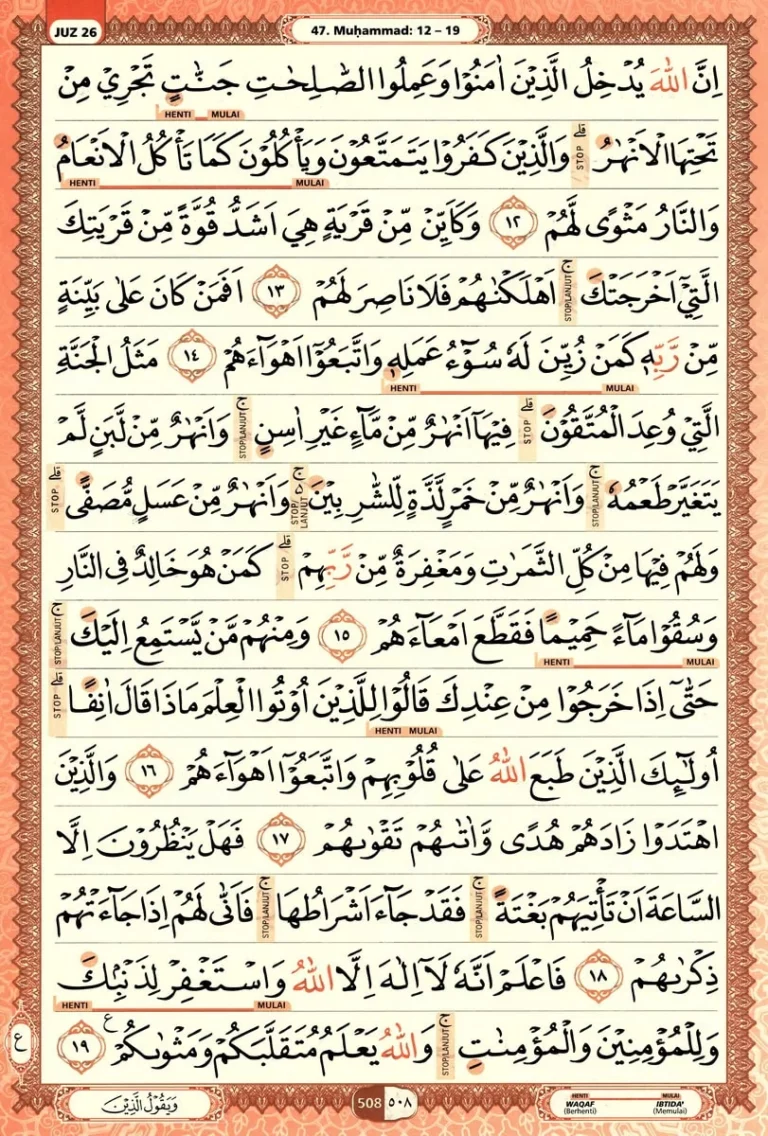 JUZ 26
47. Muḥammad: 12 – 19
اِنَّ اللّٰهَ يُدْخِلُ الَّذِيْنَ اٰمَنُوْا وَعَمِلُوا الصّٰلِحٰتِ جَنّٰتٍ تَجْرِيْ مِنْ
HENTI MULAI
تَحْتِهَا الْاَنْهٰرُ ۗ وَالَّذِيْنَ كَفَرُوْا يَتَمَتَّعُوْنَ وَيَأْكُلُوْنَ كَمَا تَأْكُلُ الْاَنْعَامُ
STOP
HENTI MULAI
وَالنَّارُ مَثْوًى لَّهُمْ ١٢ وَكَاَيِّنْ مِّنْ قَرْيَةٍ هِيَ اَشَدُّ قُوَّةً مِّنْ قَرْيَتِكَ
الَّتِيْٓ اَخْرَجَتْكَۚ اَهْلَكْنٰهُمْ فَلَا نَاصِرَ لَهُمْ ١٣ اَفَمَنْ كَانَ عَلٰى بَيِّنَةٍ
STOP/LANJUT
مِّنْ رَّبِّهٖ كَمَنْ زُيِّنَ لَهٗ سُوْۤءُ عَمَلِهٖ وَاتَّبَعُوْٓا اَهْوَاۤءَهُمْ ١٤ مَثَلُ الْجَنَّةِ
HENTI MULAI
الَّتِيْ وُعِدَ الْمُتَّقُوْنَ ۗ فِيْهَآ اَنْهٰرٌ مِّنْ مَّاۤءٍ غَيْرِ اٰسِنٍۚ وَاَنْهٰرٌ مِّنْ لَّبَنٍ لَّمْ
STOP STOP/LANJUT
يَتَغَيَّرْ طَعْمُهٗۚ وَاَنْهٰرٌ مِّنْ خَمْرٍ لَّذَّةٍ لِّلشّٰرِبِيْنَ ەۚ وَاَنْهٰرٌ مِّنْ عَسَلٍ مُّصَفًّى ۗ
STOP/LANJUT STOP/LANJUT STOP
وَلَهُمْ فِيْهَا مِنْ كُلِّ الثَّمَرٰتِ وَمَغْفِرَةٌ مِّنْ رَّبِّهِمْ ۗ كَمَنْ هُوَ خَالِدٌ فِى النَّارِ
STOP
وَسُقُوْا مَاۤءً حَمِيْمًا فَقَطَّعَ اَمْعَاۤءَهُمْ ١٥ وَمِنْهُمْ مَّنْ يَّسْتَمِعُ اِلَيْكَۚ
STOP/LANJUT
HENTI MULAI
حَتّٰىٓ اِذَا خَرَجُوْا مِنْ عِنْدِكَ قَالُوْا لِلَّذِيْنَ اُوْتُوا الْعِلْمَ مَاذَا قَالَ اٰنِفًا ۗ
STOP
HENTI MULAI
اُولٰۤىِٕكَ الَّذِيْنَ طَبَعَ اللّٰهُ عَلٰى قُلُوْبِهِمْ وَاتَّبَعُوْٓا اَهْوَاۤءَهُمْ ١٦ وَالَّذِيْنَ
اهْتَدَوْا زَادَهُمْ هُدًى وَّاٰتٰىهُمْ تَقْوٰىهُمْ ١٧ فَهَلْ يَنْظُرُوْنَ اِلَّا
السَّاعَةَ اَنْ تَأْتِيَهُمْ بَغْتَةً ۚ فَقَدْ جَاۤءَ اَشْرَاطُهَا ۚ فَاَنّٰى لَهُمْ اِذَا جَاۤءَتْهُمْ
STOP/LANJUT STOP/LANJUT
ذِكْرٰىهُمْ ١٨ فَاعْلَمْ اَنَّهٗ لَآ اِلٰهَ اِلَّا اللّٰهُ وَاسْتَغْفِرْ لِذَنْۢبِكَ
HENTI MULAI
وَلِلْمُؤْمِنِيْنَ وَالْمُؤْمِنٰتِۚ وَاللّٰهُ يَعْلَمُ مُتَقَلَّبَكُمْ وَمَثْوٰىكُمْ ࣖ ١٩
STOP/LANJUT
ع
وَيَقُوْلُ الَّذِيْنَ
508 ٥٠٨
HENTI MULAI
WAQAF IBTIDA'
(Berhenti) (Memulai)